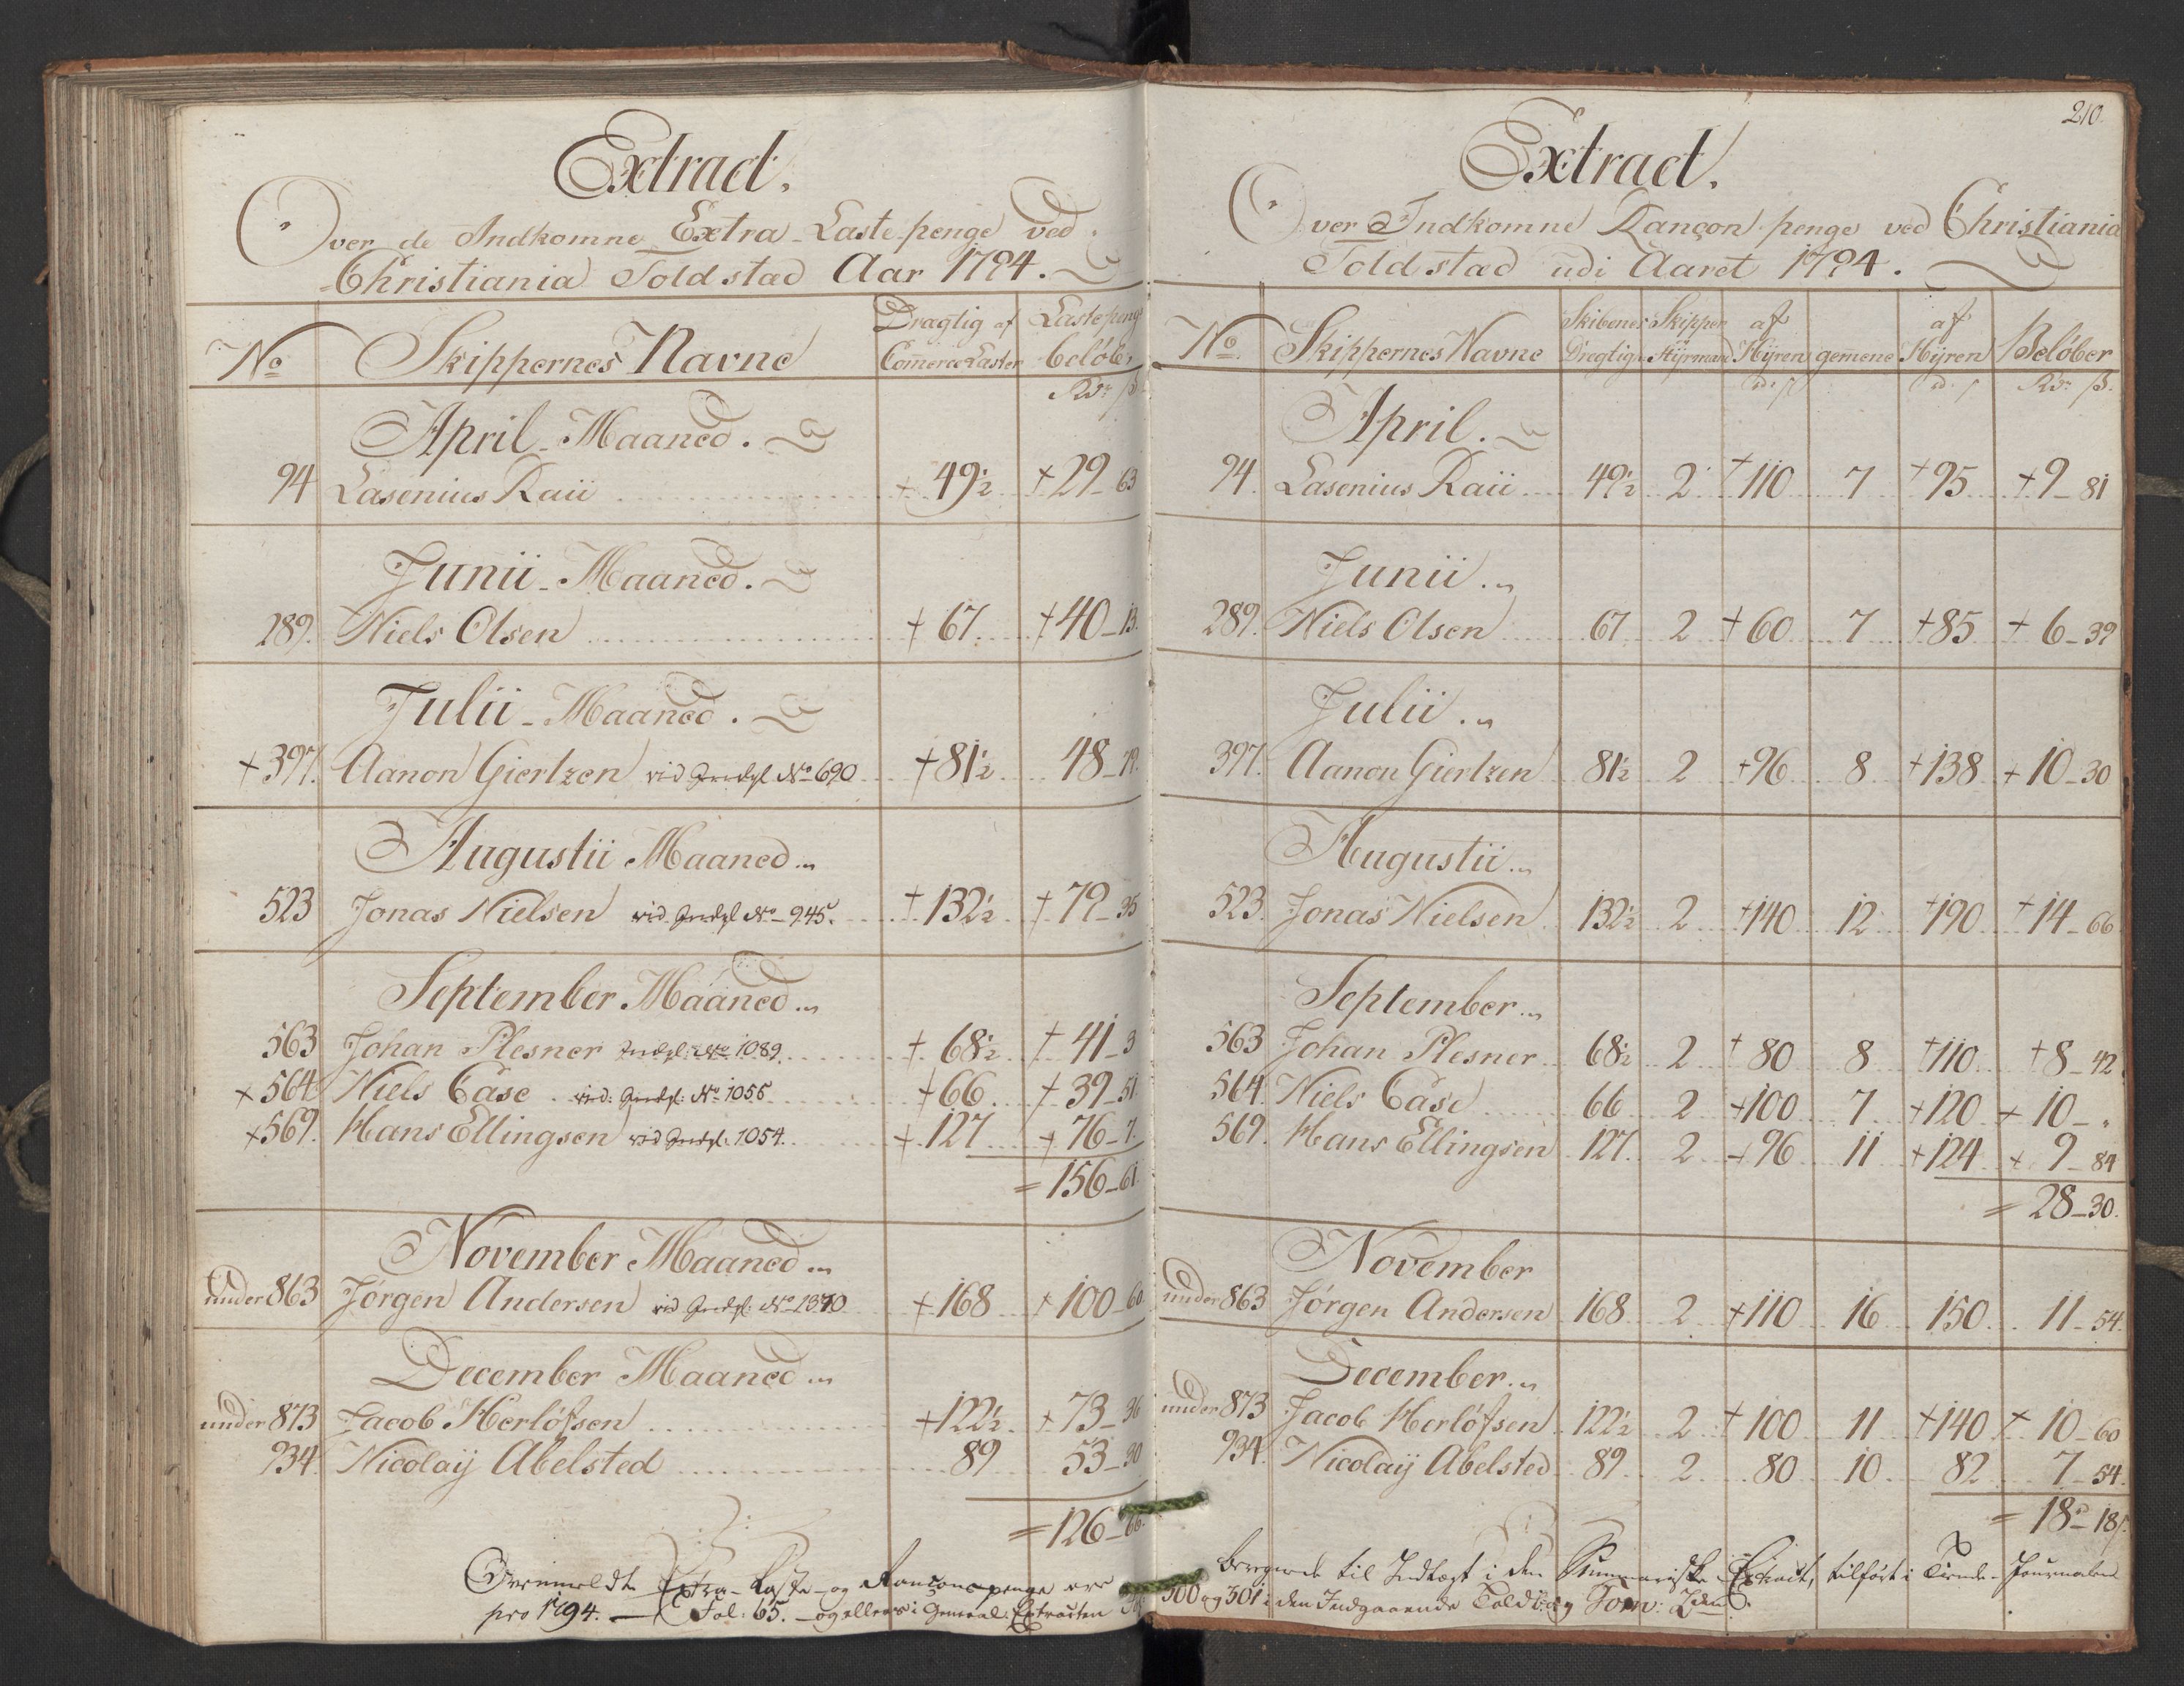 Extract.
Over de Indkomne Extra-Laste-penge ved
Christiania Toldstad Aar 1794.
No
Skippernes Navne
Dragtig af
Com̄erce Laster
Lastepeng
beløb.
Rdr ß
April Maaned.
94 Lasenius Raii + 49½ + 29-63
Junii Maaned.
289. Niels Olsen + 67 + 40-13.
Julii Maaned.
+ 397. Aanon Giertzen vid No 690 + 81½ 48-79.
Augustii Maaned
523 Jonas Nielsen vid No 945. + 132½ + 79-35
September Maaned
563 Johan Plesner No 1089. + 68½ + 41-3
+ 564 Niels Case vid: No 1055 + 66 + 39-51.
+ 569. Hans Ellingsen vid 1054. + 127 + 76-7.
= 156-61.
November Maaned
under 863 Jørgen Andersen vid No 1370 + 168 + 100-60
December Maaned
under 873 Jacob Herløfsen + 122½ + 73-36
934. Nicolaij Abelsted 89 53-30
= 126-66.
Extra-Laste og Rançonspenge ere
pro 1794. Fol: 65. og ellers i General: Extracten
210.
Extract.
Over Indkomne Rançon penge ved Christiania
Toldstad udi Aaret 1794.
No.
Skippernes Navne
Skibenes
Dregtigh
Skipper
Stijrmand
af
Hijren
gem̄ene
af
Hijren
Beløber
Rdr ß.
April.
94. Lasenius Raii 49½ 2 + 110 7 + 95 + 9-81
Junii
289. Niels Olsen 67 2 + 60 7 + 85 + 6-39
Julii
397. Aanon Giertzen 81½ 2 + 96 8 + 138 + 10-30
Augustii
523. Jonas Nielsen 132½ 2 + 140 12 + 190 + 14-66
September
563 Johan Plesner 68½ 2 + 80 8 + 110 + 8-42
564. Niels Case 66 2 + 100 7 + 120 + 10-
569. Hans Ellingsen 127 2 + 96 11 + 124 + 9-84
= 28-30.
November
under 863 Jørgen Andersen 168 2 + 110 16 150 11-54
December
under 873 Jacob Herløfsen 122½ 2 + 100 11 + 140 + 10-60
934. Nicolaij Abelsted 89 2 80 10 82 7-54.
= 18-18
til Indtægt i den Summariske Extract, tilført i Tiende-Journalen
300 og 301 i den Indgaaende Toldbog Tom: